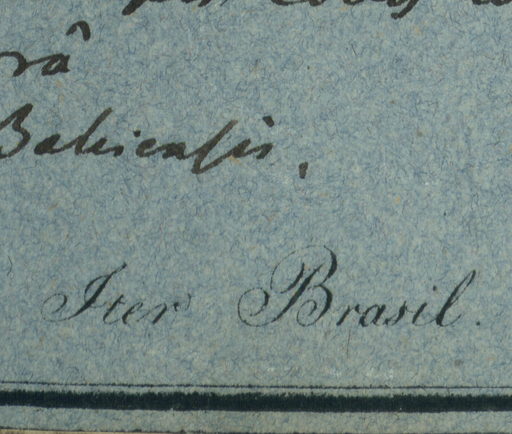 râ
Bahiensis,
Iter Brasil.